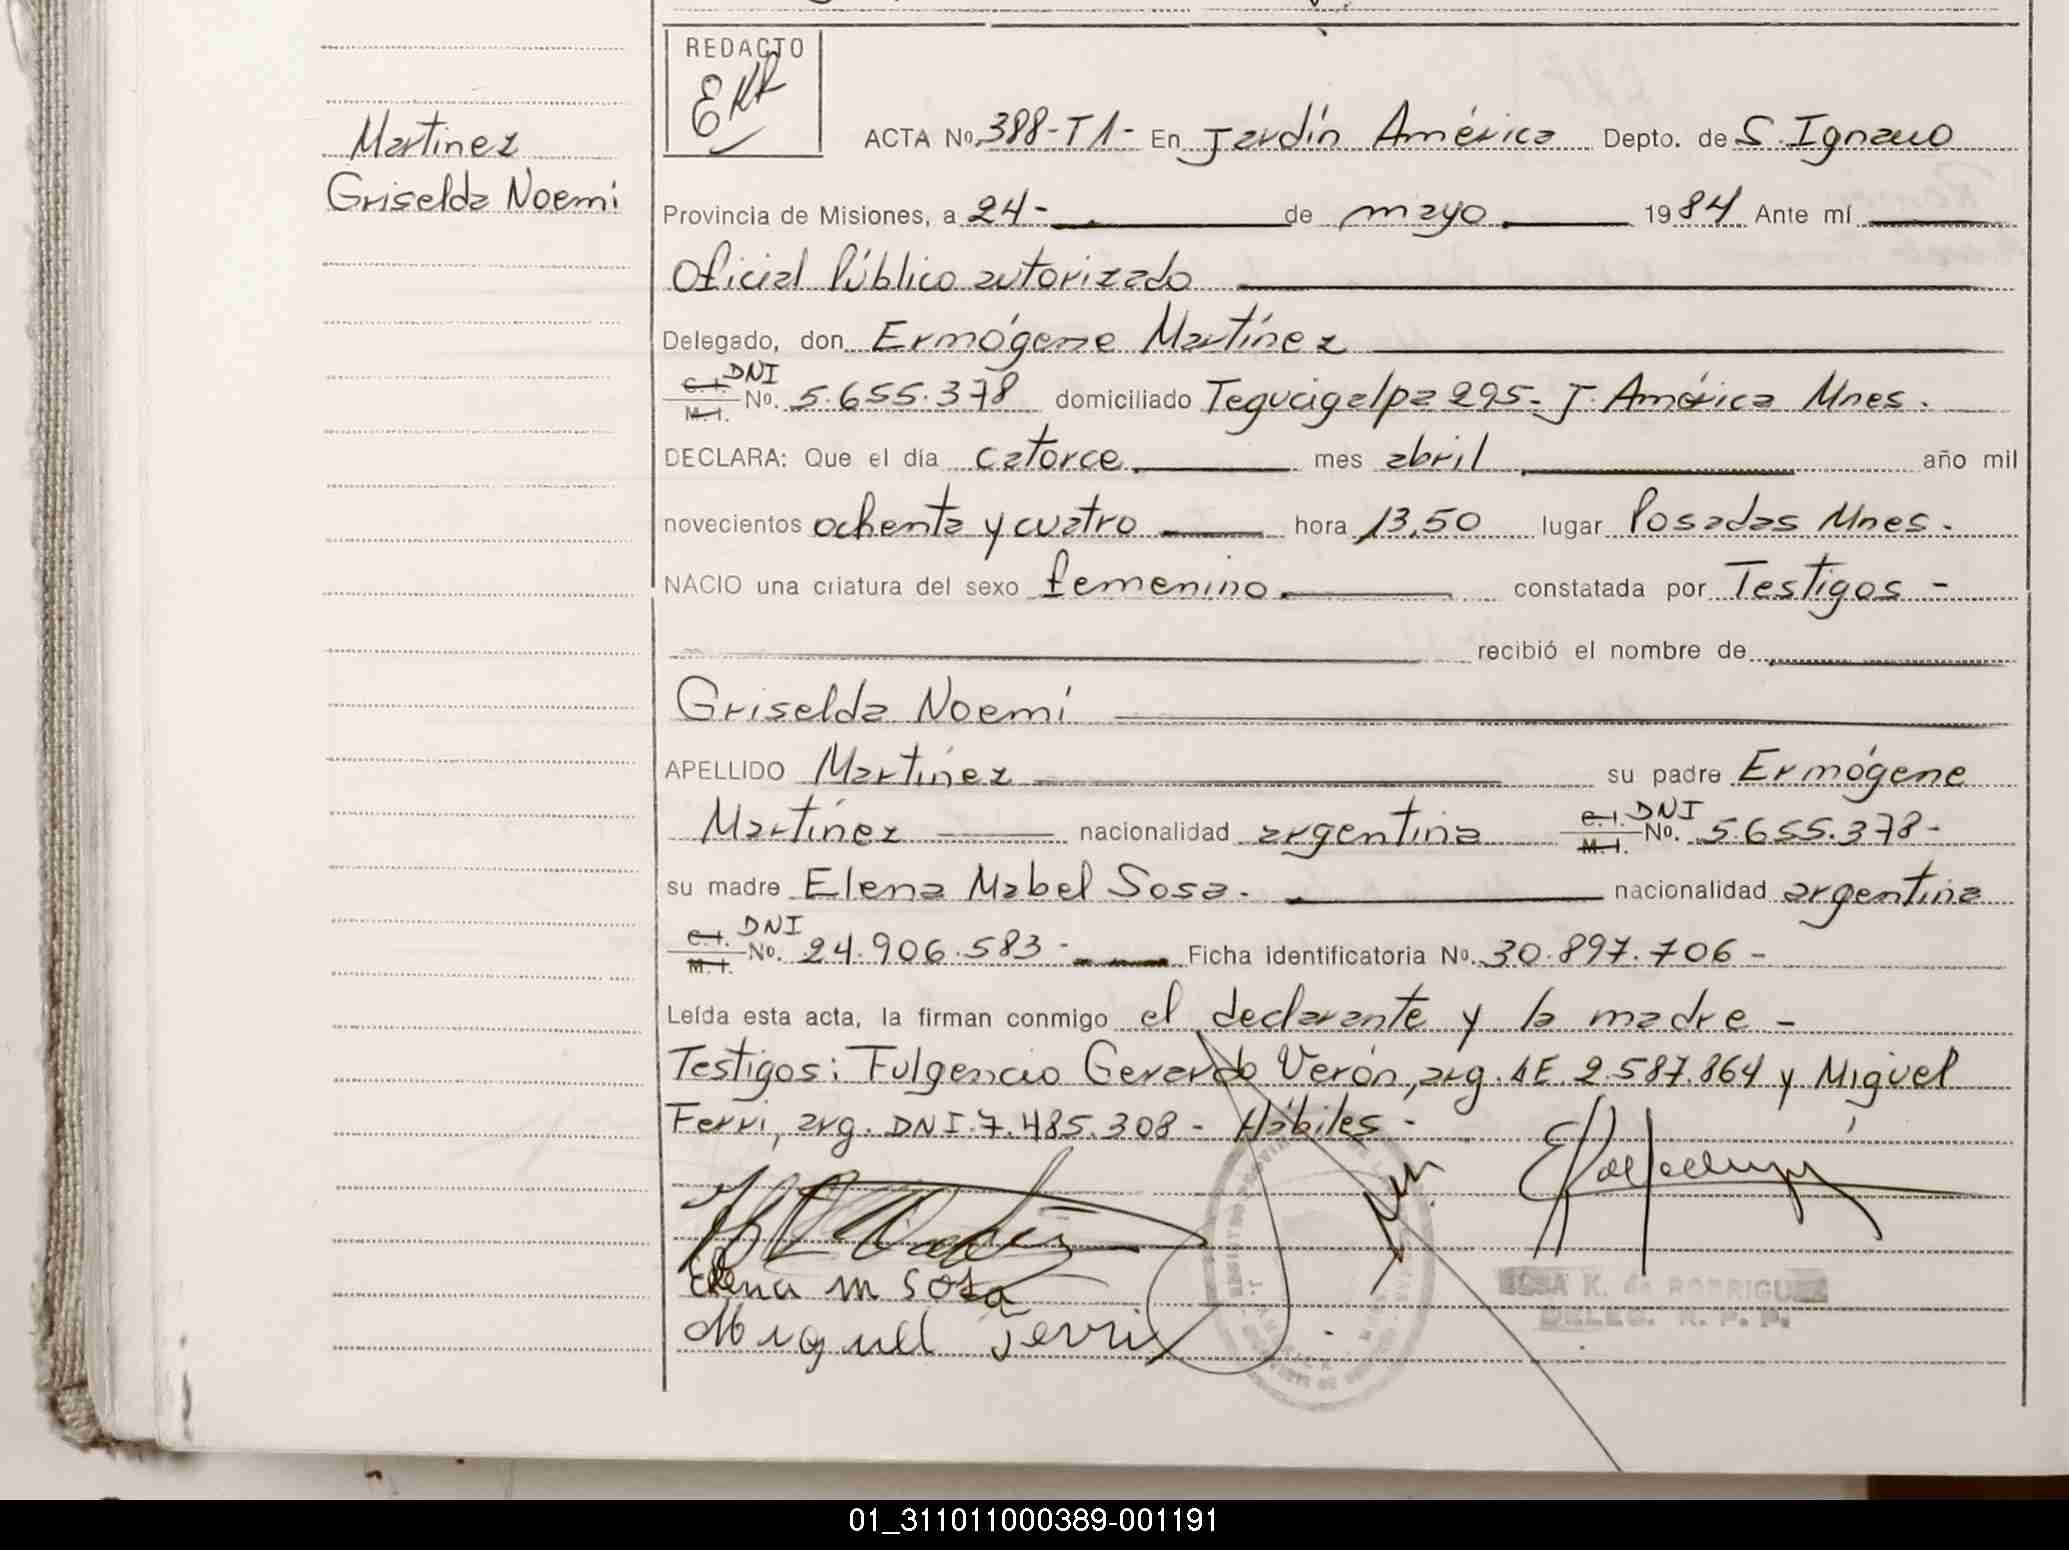 REDACTO
EKR
ACTA Nº 388-T1- En Jardín América Depto. de S. Ignacio
Martinez
Griselda Noemi
Provincia de Misiones, a 24- de mayo 1984 Ante mí
Oficial Público autorizado
Delegado, don Ermógene Martínez
C.I. DNI
M.I. Nº. 5.655.378 domiciliado Tegucigalpa 295- J. América Mnes.
DECLARA: Que el día catorce mes abril año mil
novecientos ochenta y cuatro hora 13,50 lugar Posadas Mnes.
NACIO una criatura del sexo femenino constatada por Testigos -
recibió el nombre de
Griselda Noemí
APELLIDO Martínez su padre Ermógene
Martínez nacionalidad argentina C.I. DNI M.I. Nº. 5.655.378-
su madre Elena Mabel Sosa. nacionalidad argentina
C.I. DNI
M.I. Nº. 24.906.583- Ficha identificatoria Nº. 30.897.706-
Leída esta acta, la firman conmigo el declarante y la madre -
Testigos: Fulgencio Gerardo Verón, arg. LE. 2.587.864 y Miguel
Ferri, arg. DNI. 7.485.308 - Hábiles -
Elena m sosa
Miguel Ferri
K. de RODRIGUEZ
DELEG. R. P. P.
01_311011000389-001191